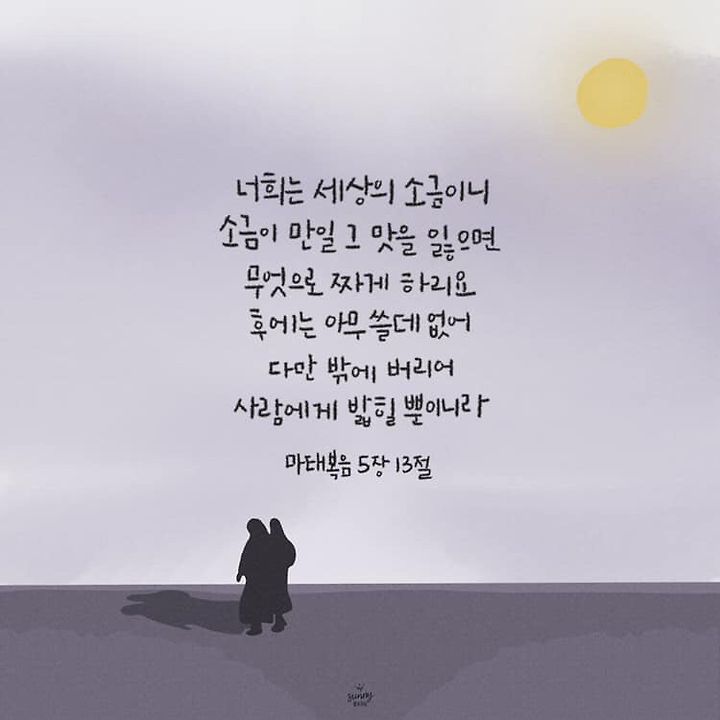 너희는 세상의 소금이니
소금이 만일 그 맛을 잃으면
무엇으로 짜게 하리요
후에는 아무 쓸데 없어
다만 밖에 버리어
사람에게 밟힐 뿐이니라
마태복음 5장 13절
sunny